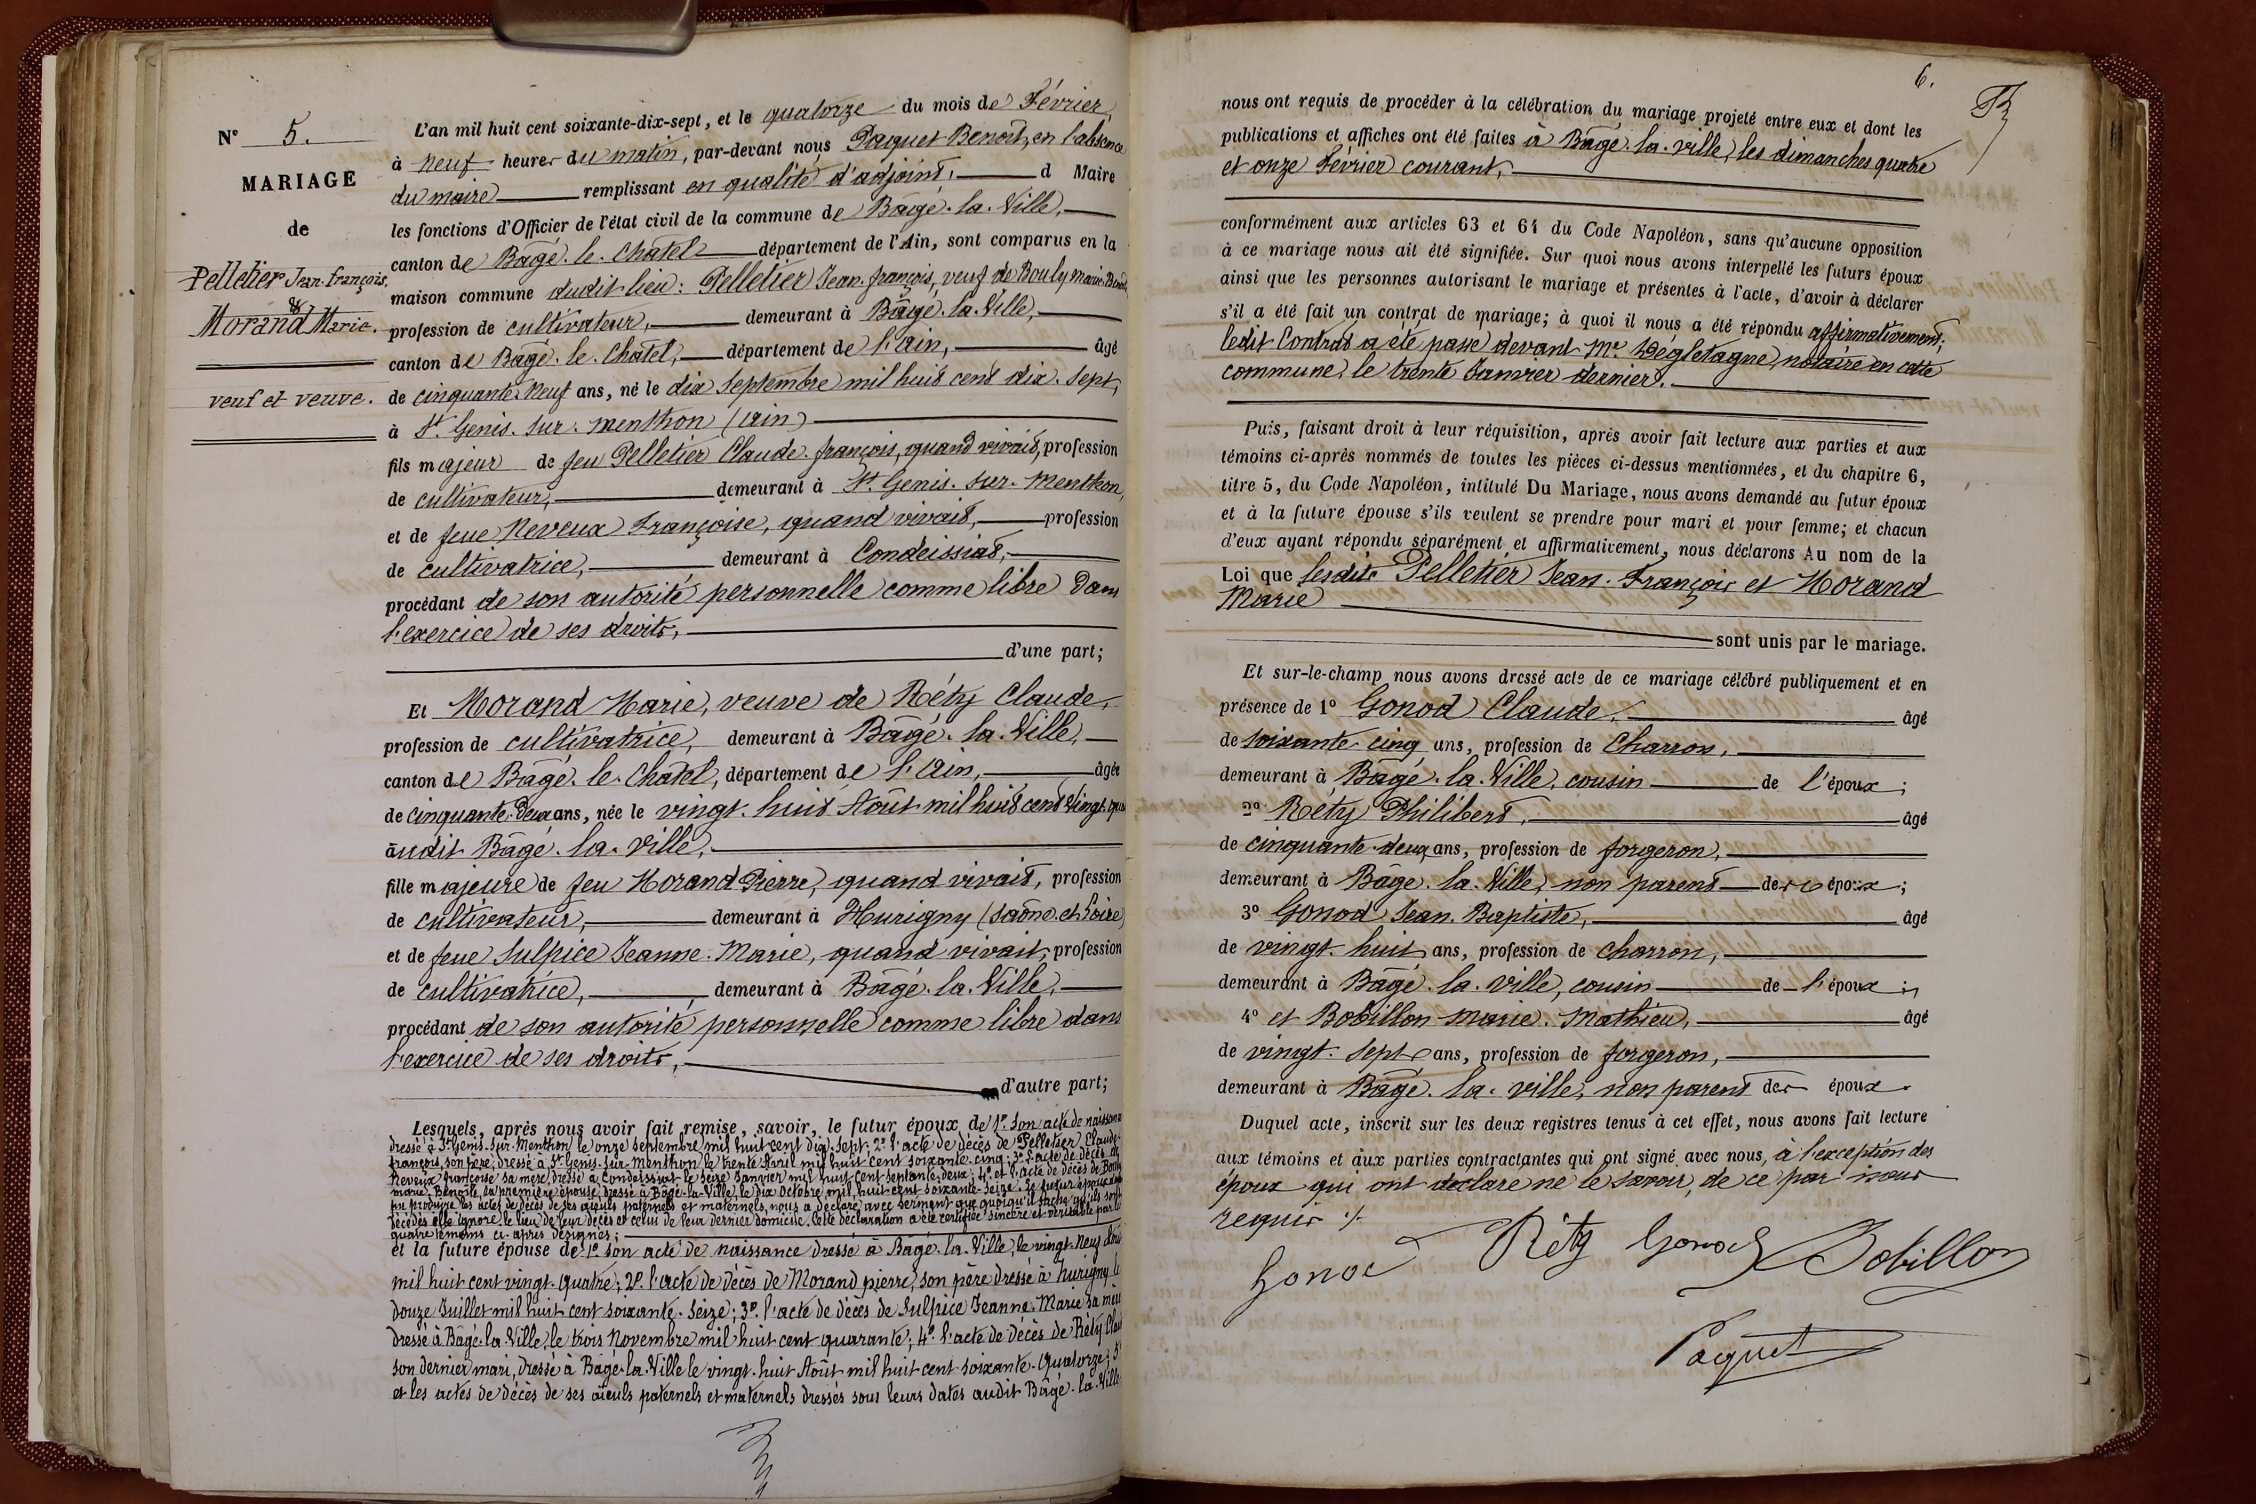 N° 5.
MARIAGE
de
Pelletier Jean-François,
&
Morand Marie.
veuf et veuve.
L'an mil huit cent soixante-dix-sept, et le quatorze du mois de Février,
à neuf heures du matin, par-devant nous Paquet Benoît, en l'absence
du maire remplissant en qualité d'adjoint, d Maire
les fonctions d'Officier de l'état civil de la commune de Bâgé-la-Ville,
canton de Bâgé-le-Châtel département de l'Ain, sont comparus en la
maison commune dudit lieu: Pelletier Jean-François, veuf de Bouly Marie-
profession de cultivateur, demeurant à Bâgé-la-Ville,
canton de Bâgé-le-Châtel, département de l'Ain, âgé
de cinquante-neuf ans, né le dix Septembre mil huit cent dix-sept,
à St Genis-sur-Menthon (Ain)
fils majeur de feu Pelletier Claude-François, quand vivait, profession
de cultivateur, demeurant à St Genis-sur-Menthon,
et de feue Neveux Françoise, quand vivait, profession
de cultivatrice, demeurant à Condeissiat,
procédant de son autorité personnelle comme libre dans
l'exercice de ses droits,
d'une part;
Et Morand Marie, veuve de Réty Claude,
profession de cultivatrice, demeurant à Bâgé-la-Ville,
canton de Bâgé-le-Châtel, département de l'Ain, âgée
de cinquante-deux ans, née le vingt-huit Août mil huit cent vingt-
audit Bâgé-la-Ville,
fille majeure de feu Morand Pierre, quand vivait, profession
de cultivateur, demeurant à Hurigny (Saône-et-Loire)
et de feue Sulpice Jeanne-Marie, quand vivait, profession
de cultivatrice, demeurant à Bâgé-la-Ville,
procédant de son autorité personnelle comme libre dans
l'exercice de ses droits,
d'autre part;
Lesquels, après nous avoir fait remise, savoir, le futur époux de 1° son acte de naissance
dressé à St Genis-sur-Menthon le onze septembre mil huit cent dix-sept; 2° l'acte de décès de Pelletier Claude-
françois, son père, dressé à St Genis-sur-Menthon le trente Avril mil huit cent soixante-cinq; 3° l'acte de décès de
Neveux françoise sa mère, dressé à Condeissiat le seize Janvier mil huit cent septante-deux; 4° et l'acte de décès de Bouly
marie-Benoîte, sa première épouse, dressé à Bâgé-la-Ville, le dix Octobre mil huit cent soixante-seize. Le futur époux
pu produire les actes de décès de ses aïeuls paternels et maternels, nous a déclaré avec serment que quoiqu'il sache qu'ils sont
décédés, elle ignore le lieu de leur décès et celui de leur dernier domicile. Cette déclaration a été certifiée sincère et véritable par les
quatre témoins ci-après désignés;
et la future épouse de 1° son acte de naissance dressé à Bâgé-la-Ville, le vingt-neuf Août
mil huit cent vingt-quatre; 2° l'acte de décès de Morand pierre, son père dressé à hurigny le
douze Juillet mil huit cent soixante-seize; 3° l'acte de décès de Sulpice Jeanne-Marie sa mère
dressé à Bâgé-la-Ville, le trois Novembre mil huit cent quarante; 4° l'acte de décès de Réty
son dernier mari, dressé à Bâgé-la-Ville le vingt-huit Août mil huit cent soixante-quatorze; 5°
et les actes de décès de ses aïeuls paternels et maternels dressés sous leurs dates audit Bâgé-la-Ville
6.
nous ont requis de procéder à la célébration du mariage projeté entre eux et dont les
publications et affiches ont été faites à Bâgé-la-ville, les dimanches quatre
et onze Février courant,
conformément aux articles 63 et 64 du Code Napoléon, sans qu'aucune opposition
à ce mariage nous ait été signifiée. Sur quoi nous avons interpellé les futurs époux
ainsi que les personnes autorisant le mariage et présentes à l'acte, d'avoir à déclarer
s'il a été fait un contrat de mariage; à quoi il nous a été répondu affirmativement;
ledit Contrat a été passé devant Me Dégletagne, notaire en cette
commune, le trente Janvier dernier.
Puis, faisant droit à leur réquisition, après avoir fait lecture aux parties et aux
témoins ci-après nommés de toutes les pièces ci-dessus mentionnées, et du chapitre 6,
titre 5, du Code Napoléon, intitulé Du Mariage, nous avons demandé au futur époux
et à la future épouse s'ils veulent se prendre pour mari et pour femme; et chacun
d'eux ayant répondu séparément et affirmativement, nous déclarons Au nom de la
Loi que lesdits Pelletier Jean-François et Morand
Marie
sont unis par le mariage.
Et sur-le-champ nous avons dressé acte de ce mariage célébré publiquement et en
présence de 1° Gonod Claude, âgé
de soixante-cinq ans, profession de Charron,
demeurant à Bâgé-la-Ville, cousin de l'époux;
2° Réty Philibert, âgé
de cinquante-deux ans, profession de forgeron,
demeurant à Bâgé-la-Ville, non parent des époux;
3° Gonod Jean-Baptiste, âgé
de vingt-huit ans, profession de charron,
demeurant à Bâgé-la-Ville, cousin de l'époux;
4° et Bobillon Marie-Mathieu, âgé
de vingt-sept ans, profession de forgeron,
demeurant à Bâgé-la-ville, non parent des époux.
Duquel acte, inscrit sur les deux registres tenus à cet effet, nous avons fait lecture
aux témoins et aux parties contractantes qui ont signé avec nous, à l'exception des
époux qui ont déclaré ne le savoir, de ce par nous
requis ./.
Gonod Réty Gonod Bobillon
Paquet